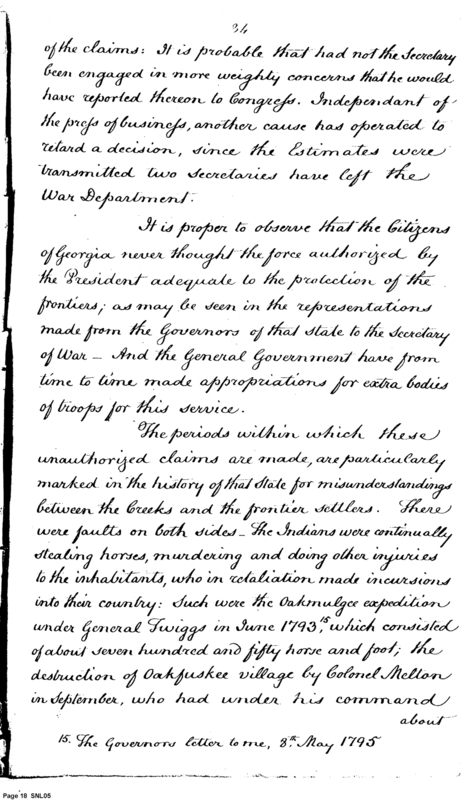 34
of the claims: It is probable that had not the Secretary
been engaged in more weighty concerns that he would
have reported thereon to Congress. Independant of
the press of business, another cause has operated to
retard a decision, since the Estimates were
transmitted two secretaries have left the
War Department.
It is proper to observe that the Citizens
of Georgia never thought the force authorized by
the President adequate to the protection of the
frontiers; as may be seen in the representations
made from the Governors of that state to the Secretary
of War – And the General Government have from
time to time made appropriations for extra bodies
of troops for this service.
The periods within which these
unauthorized claims are made, are particularly
marked in the history of that State for misunderstandings
between the Creeks and the frontier settlers. There
were faults on both sides – The Indians were continually
stealing horses, murdering and doing other injuries
to the inhabitants, who in retaliation made incursions
into their country: Such were the Oakmulgee expedition
under General Twiggs in June 1793,15 which consisted
of about seven hundred and fifty horse and foot; the
destruction of Oakfuskee village by Colonel Melton
in September, who had under his command
about
15. The Governors letter to me, 8th. May 1795
Page 18 SNL05